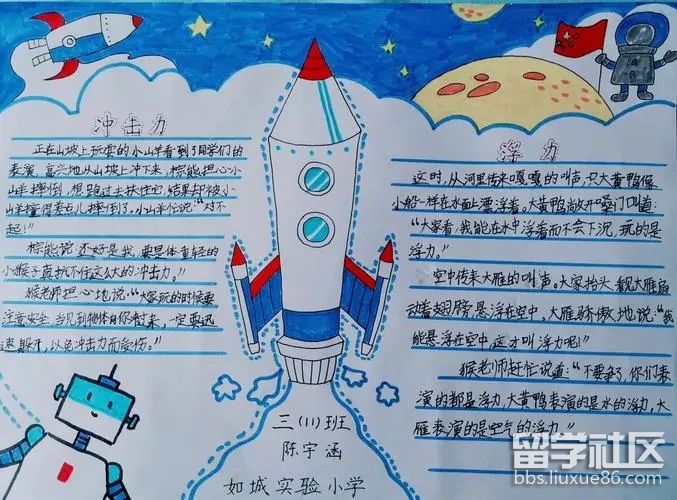 冲击力
正在山坡上玩耍的小山羊看到了同学们的
表演,高兴地从山坡上冲下来,棕熊担心小
山羊摔倒,想跑过去扶住它,结果却被小
山羊撞得差点儿摔倒了。小山羊忙说:“对不
起!”
棕熊说:还好是我,要是体重轻的
小猴子真抗不住这么大的冲击力。”
猴老师担心地说:“大家玩的时候要
注意安全,当见到物体向你冲过来,一定要迅
速躲开,以免冲击力而受伤。”
浮力
这时,从河里传来嘎嘎的叫声,只大黄鸭像
小船一样在水面上漂浮着。大黄鸭敞开嗓门叫道:
“大家看,我能在水中浮着而不会下沉,玩的是
浮力。”
空中传来大雁的叫声。大家抬头,看见大雁扇
动着翅膀,悬浮在空中。大雁骄傲地说:“我
能悬浮在空中,这才叫浮力呢!”
猴老师赶忙说道:“不要争了,你们表
演的都是浮力,大黄鸭表演的是水的浮力,大
雁表演的是空气的浮力。”
三(11)班
陈宇涵
如城实验小学
留学社区
bbs.liuxue86.com